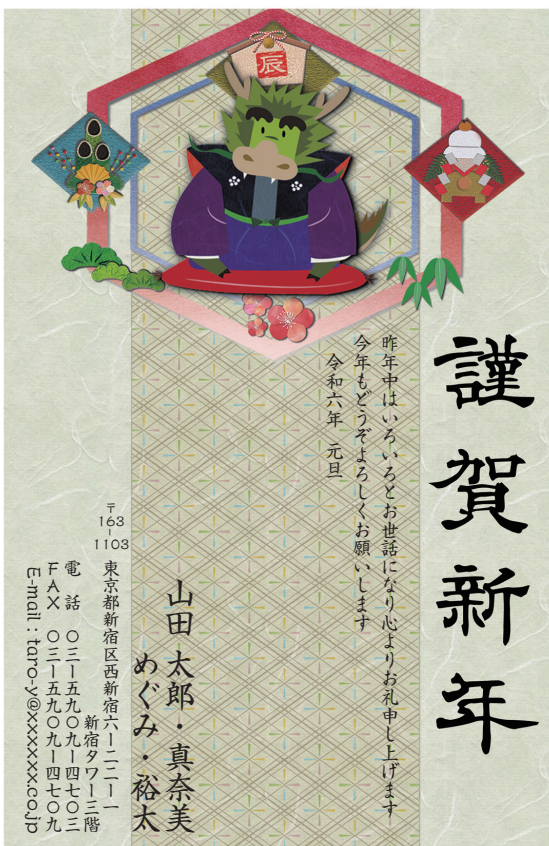 辰
謹賀新年
昨年中はいろいろとお世話になり心よりお礼申し上げます
今年もどうぞよろしくお願いします
令和六年　元旦
山田 太郎・真奈美
めぐみ・裕太
〒163-1103
東京都新宿区西新宿六ー二二ー一
新宿タワー三階
電　話　〇三ー五九〇九ー四七〇三
ＦＡＸ　〇三ー五九〇九ー四七〇九
E-mail：taro-y@xxxxxx.co.jp